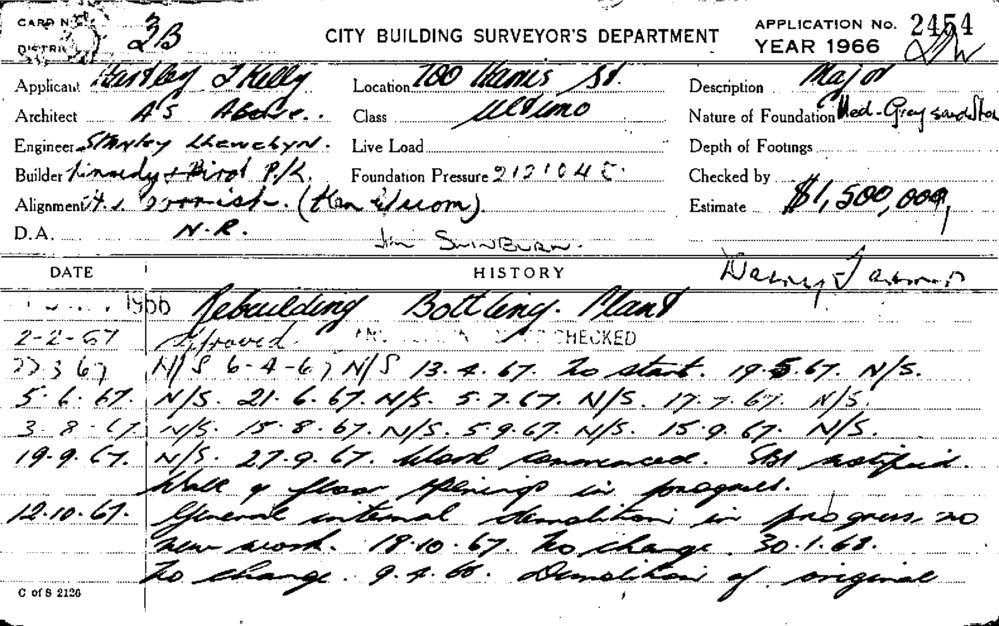 CARD No. 2B CITY BUILDING SURVEYOR'S DEPARTMENT APPLICATION No. 2454
DISTRICT YEAR 1966
Applicant Hartley & Kelly Location 700 Harris St. Description Major
Architect As Above.. Class Ultimo Nature of Foundation Med-Grey Sandston
Engineer Stanley Llewelyn. Live Load Depth of Footings
Builder Kennedy & Bird P/L. Foundation Pressure Checked by
Alignment (Ken Elsom). Estimate $1,500,000,
D.A. N.R. Jim SWINBURN.
DATE HISTORY
1966 Rebuilding Bottling Plant
2-2-67 Approved. CHECKED
3 67 N/S 6-4-67 N/S 13.4.67. No start. 19.5.67. N/S.
5.6.67. N/S. 21.6.67. N/S. 5.7.67. N/S. 17.7.67. N/S.
3.8.67 N/S. 15.8.67. N/S. 5.9.67. N/S. 15.9.67. N/S.
19.9.67. N/S. 27.9.67. Work commenced. SBI notified.
Wall & floor openings in progress.
12.10.67. General internal demolition in progress, no
new work. 18.10.67. No change. 30.1.68.
No change. 9.4.68. Demolition of original
C of S 2126